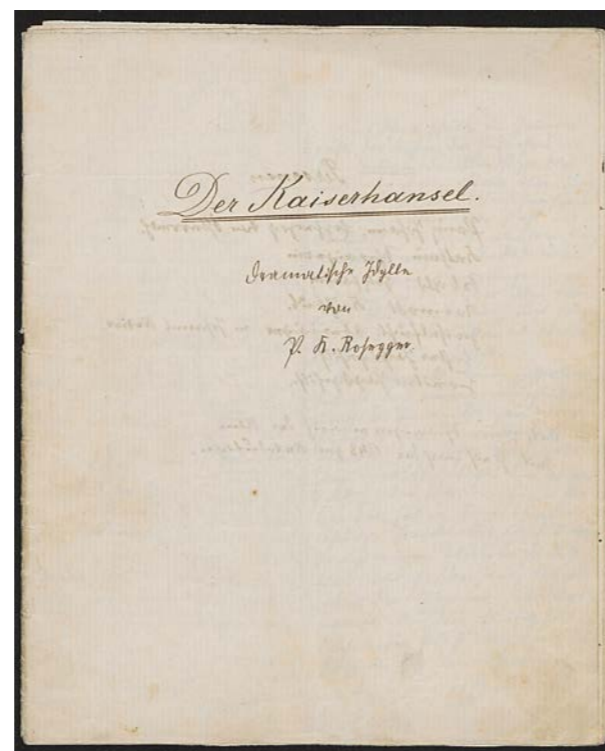 Der Kaiserhansel.
Dramatische Idylle
von
P. K. Rosegger.